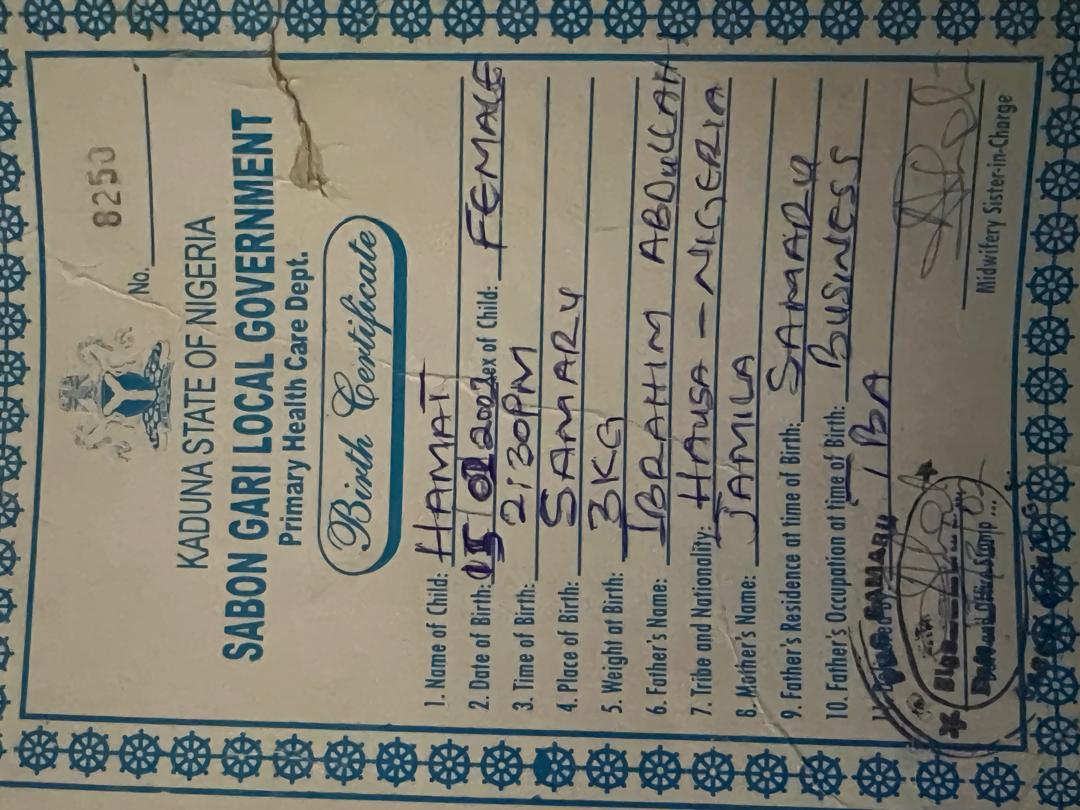 No. 8250
KADUNA STATE OF NIGERIA
SABON GARI LOCAL GOVERNMENT
Primary Health Care Dept.
Birth Certificate
1. Name of Child: HAMAT
2. Date of Birth: Sex of Child: FEMALE
3. Time of Birth: 2:30PM
4. Place of Birth: SAMARU
5. Weight at Birth: 3KG
6. Father's Name: IBRAHIM ABDULLAHI
7. Tribe and Nationality: HAUSA - NIGERIA
8. Mother's Name: JAMILA
9. Father's Residence at time of Birth: SAMARU
10. Father's Occupation at time of Birth: BUSINESS
11. SAMARU
Midwifery Sister-in-Charge